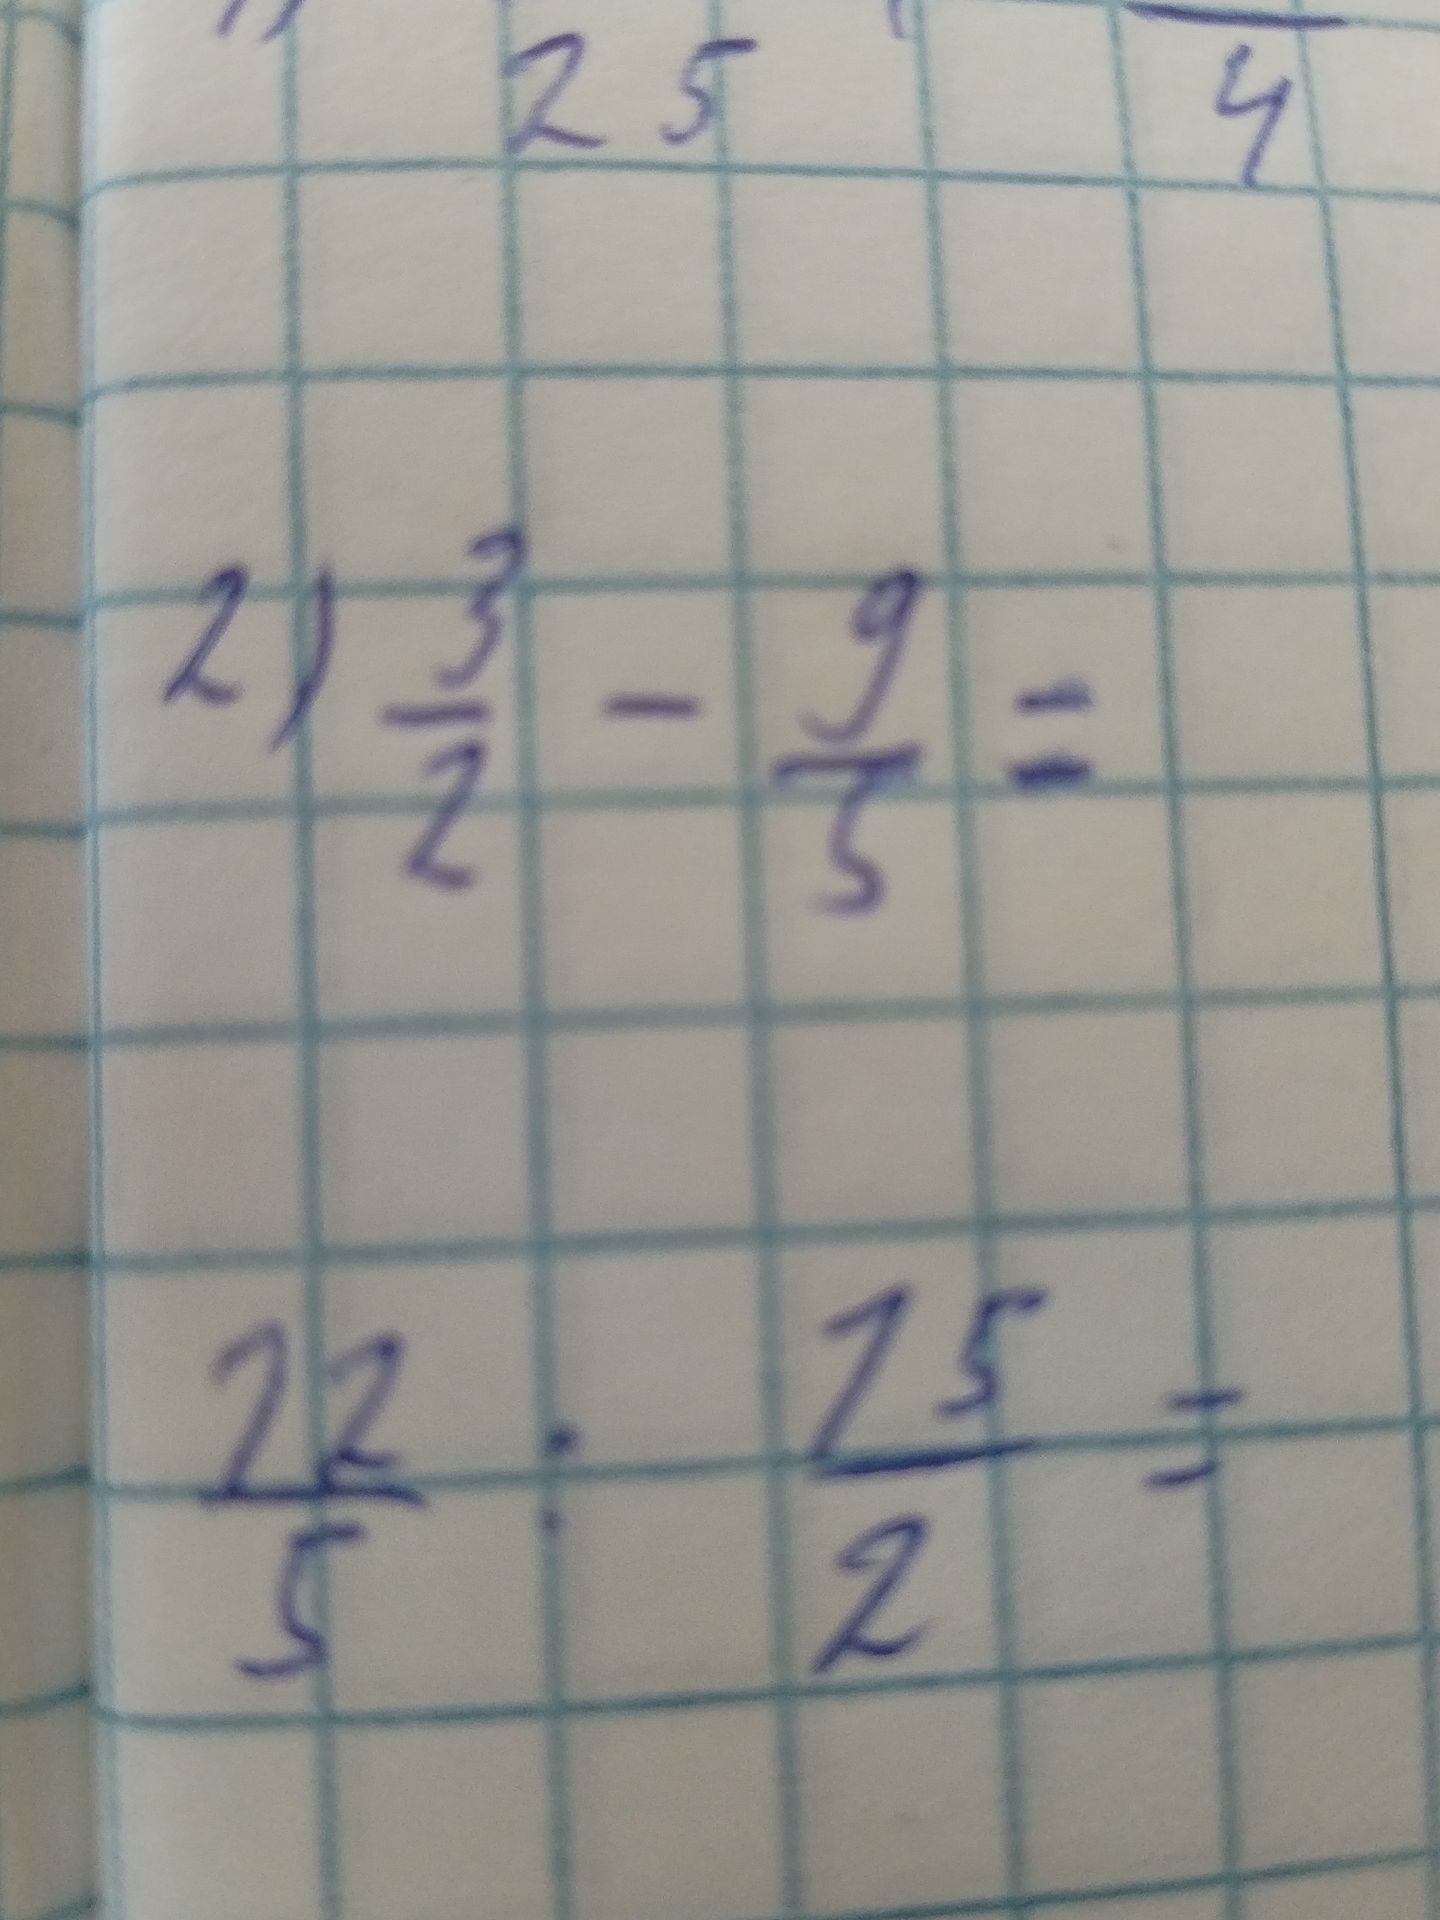 25 4
2) 3/2 - 9/5 =
12/5 : 15/2 =